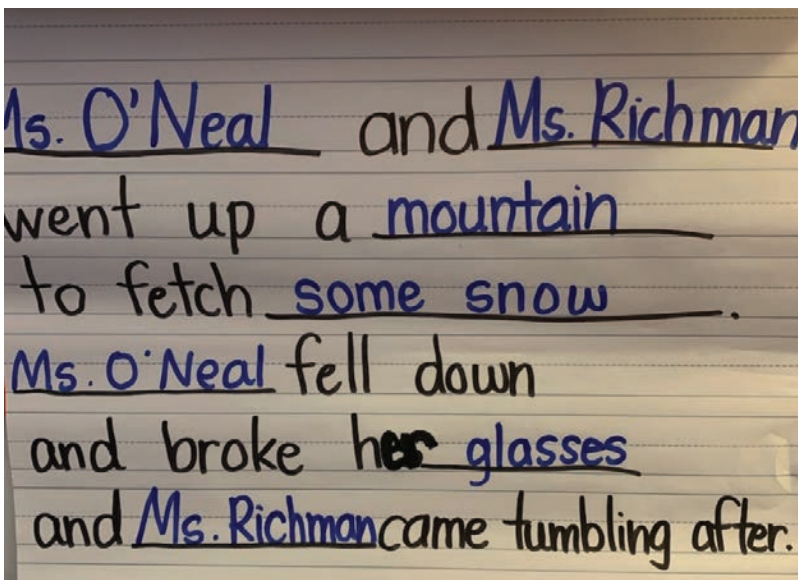 Ms. O'Neal and Ms. Richman
went up a mountain
to fetch some snow.
Ms. O'Neal fell down
and broke her glasses
and Ms. Richman came tumbling after.